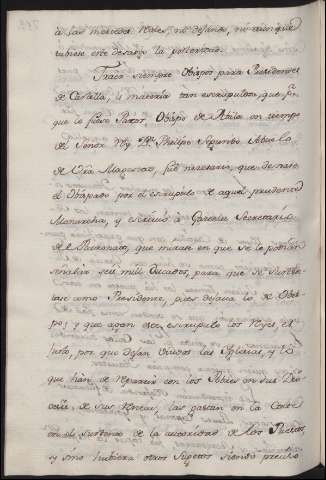 à las mercedes Reales, no dejando, ni aun que
tubiese este desahogo la posteridad.
Traer siempre Obispos para Presidentes
de Castilla, es materia tan escrupulosa, que sin
que lo fuese Pazos, Obispo de Avila en tiempo
del Señor Rey Dn. Phelipe Segundo Abuelo
de Vra Magestad, fué necesario, que dejase
el Obispado por el escrupulo de aquel prudente
Monarcha, y escrivió à Gasenia Secretario
de el Patronato, que mirase en que se le podrian
señalar seis mil Ducados, para que se susten-
tase como Presidente, pues dejava lo de Obis-
po; y que ayan este escrupulo los Reyes, es
justo, por que dejan viudas las Yglesias, y lo
que hàn de repartir con los Pobres en sus Dio-
cesis de sus Rentas, las gastan en la Corte
en el sustento de la autoridad de los Puestos,
y sino hubiera otros Sugetos siendo preciso